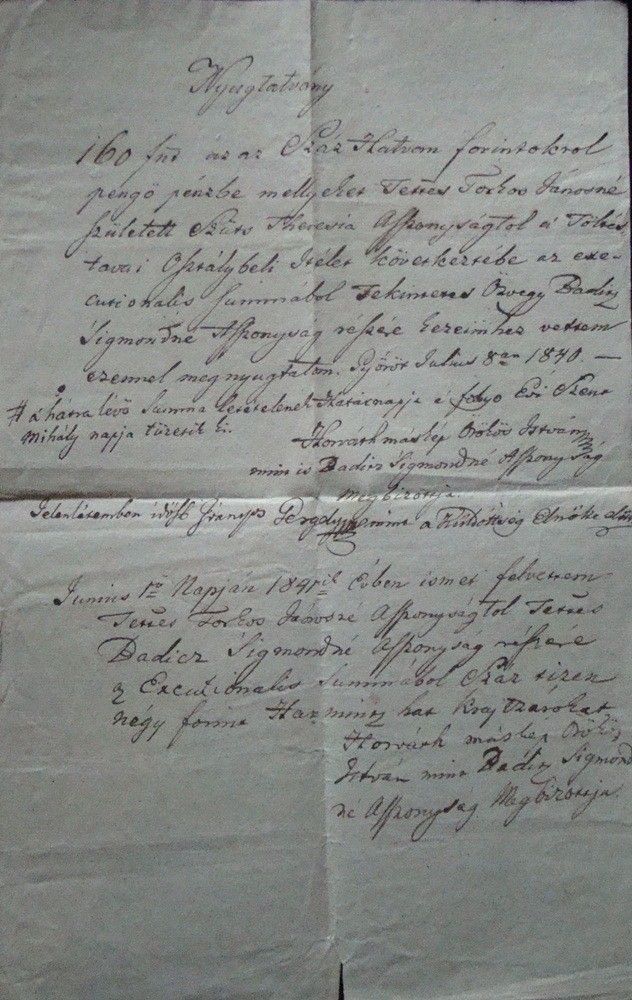 Nyugtatvány
160 fnt az az Száz Hatvan forintokrol
pengő pénzbe mellyeket Tettes Torkos Jánosné
született Szüts Theresia Aszszonyságtol a Töltés
tavai Osztálybeli Itélet következtébe az exe-
cutionalis Summábol Tekintetes Özvegy Dadicz
Sigmondné Aszszonyság részére kezeimhez vettem
ezennel megnyugtatom. Győröt Julius 8án 1840. —
# a hátra lévő Summa letételenek Határnapja a folyo Évi Szent
Mihály napja tüzetik ki.
Horváth máskép Örökös István
mint is Dadicz Sigmondné Aszszonyság
megbizottja
Jelenlétemben idősb mint a Küldöttség Elnöke előtt
Junius 1ső Napján 1841ik Évben ismét felvettem
Tettes Torkos Jánosné Aszszonyságtol Tettes
Dadicz Sigmondné Aszszonyság részére
a Excutionalis Summábol Száz tizen
négy forint Harmintz hat Krajtzárokat
Horváth máskép Örökös
István mint Dadicz Sigmond
né Aszszonyság Megbizottja